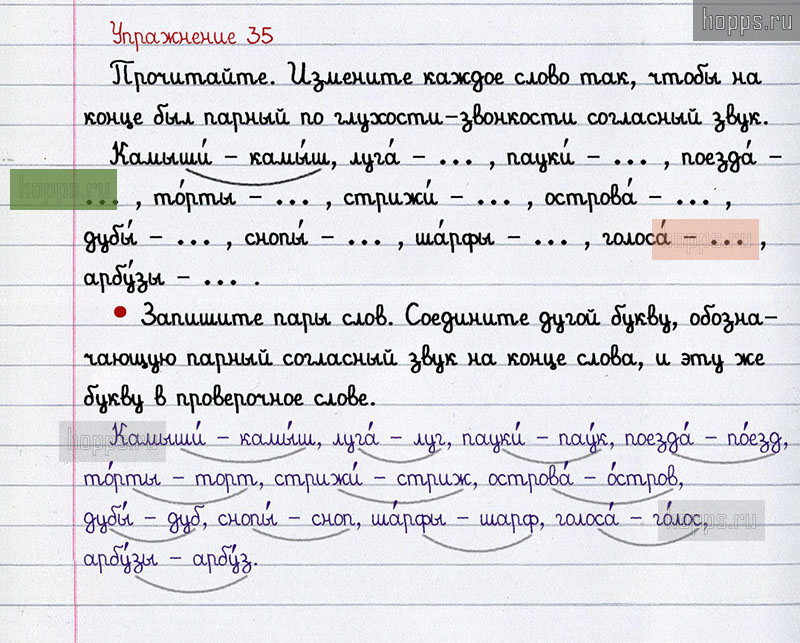 hopps.ru
Упражнение 35
Прочитайте. Измените каждое слово так, чтобы на
конце был парный по глухости-звонкости согласный звук.
Камыши́ – камы́ш, луга́ – ... , пауки́ – ... , поезда́ –
hopps.ru
... , то́рты – ... , стрижи́ – ... , острова́ – ... ,
дубы́ – ... , снопы́ – ... , ша́рфы – ... , голоса́ – ... ,
hopps.ru
арбу́зы – ... .
• Запишите пары слов. Соедините дугой букву, обозна-
чающую парный согласный звук на конце слова, и эту же
букву в проверочное слове.
hopps.ru
Камыши́ – камы́ш, луга́ – луг, пауки́ – пау́к, поезда́ – по́езд,
то́рты – торт, стрижи́ – стриж, острова́ – о́стров,
дубы́ – дуб, снопы́ – сноп, ша́рфы – шарф, голоса́ – го́лос,
hopps.ru
арбу́зы – арбу́з.